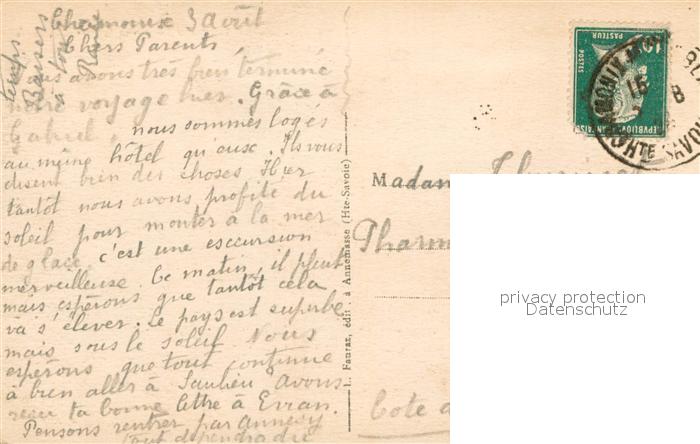 Chamonix 3 août
Chers Parents,
Nous avons très bien terminé
notre voyage hier. Grâce à
Gabriel, nous sommes logés
au même hôtel qu'eux. Ils vous
disent bien des choses. Hier
tantôt nous avons profité du
soleil pour monter à la mer
de glace, c'est une excursion
merveilleuse. Ce matin, il pleut
mais espérons que tantôt cela
va s'élever. Le pays est superbe
mais sous le soleil. Nous
espérons que tout continue
à bien aller à Saulieu. Avons
reçu ta bonne lettre à Evian.
Pensons rentrer par Annecy
tout dépendra du
temps
Baisers
à tous
L. Fauraz, édit. à Annemasse (Hte-Savoie)
Madam
Pharm
Cote d
POSTES
PASTEUR
REPUBLIQUE FRANÇAISE
HTE SAVOIE
privacy protection
Datenschutz